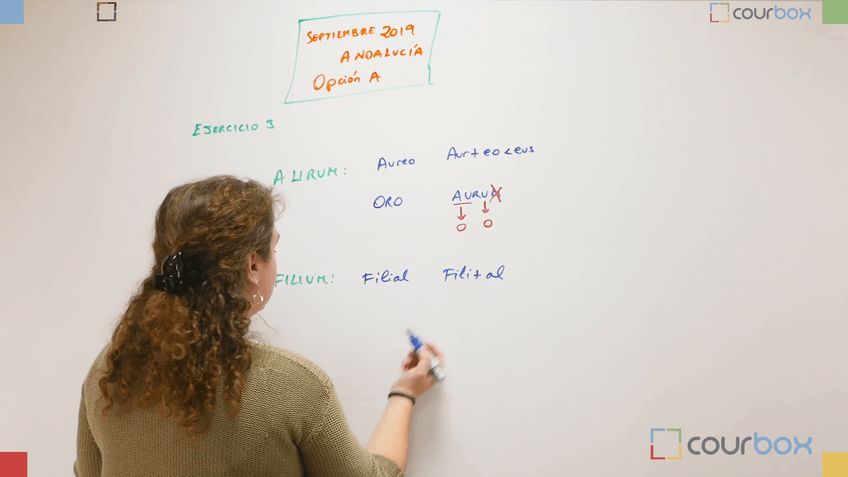 courbox
SEPTIEMBRE 2019
ANDALUCÍA
Opción A
EJERCICIO 3
AURUM: Aureo Aur+eo<eus
ORO AURUM
O O
FILIUM: Filial Fili+al
courbox